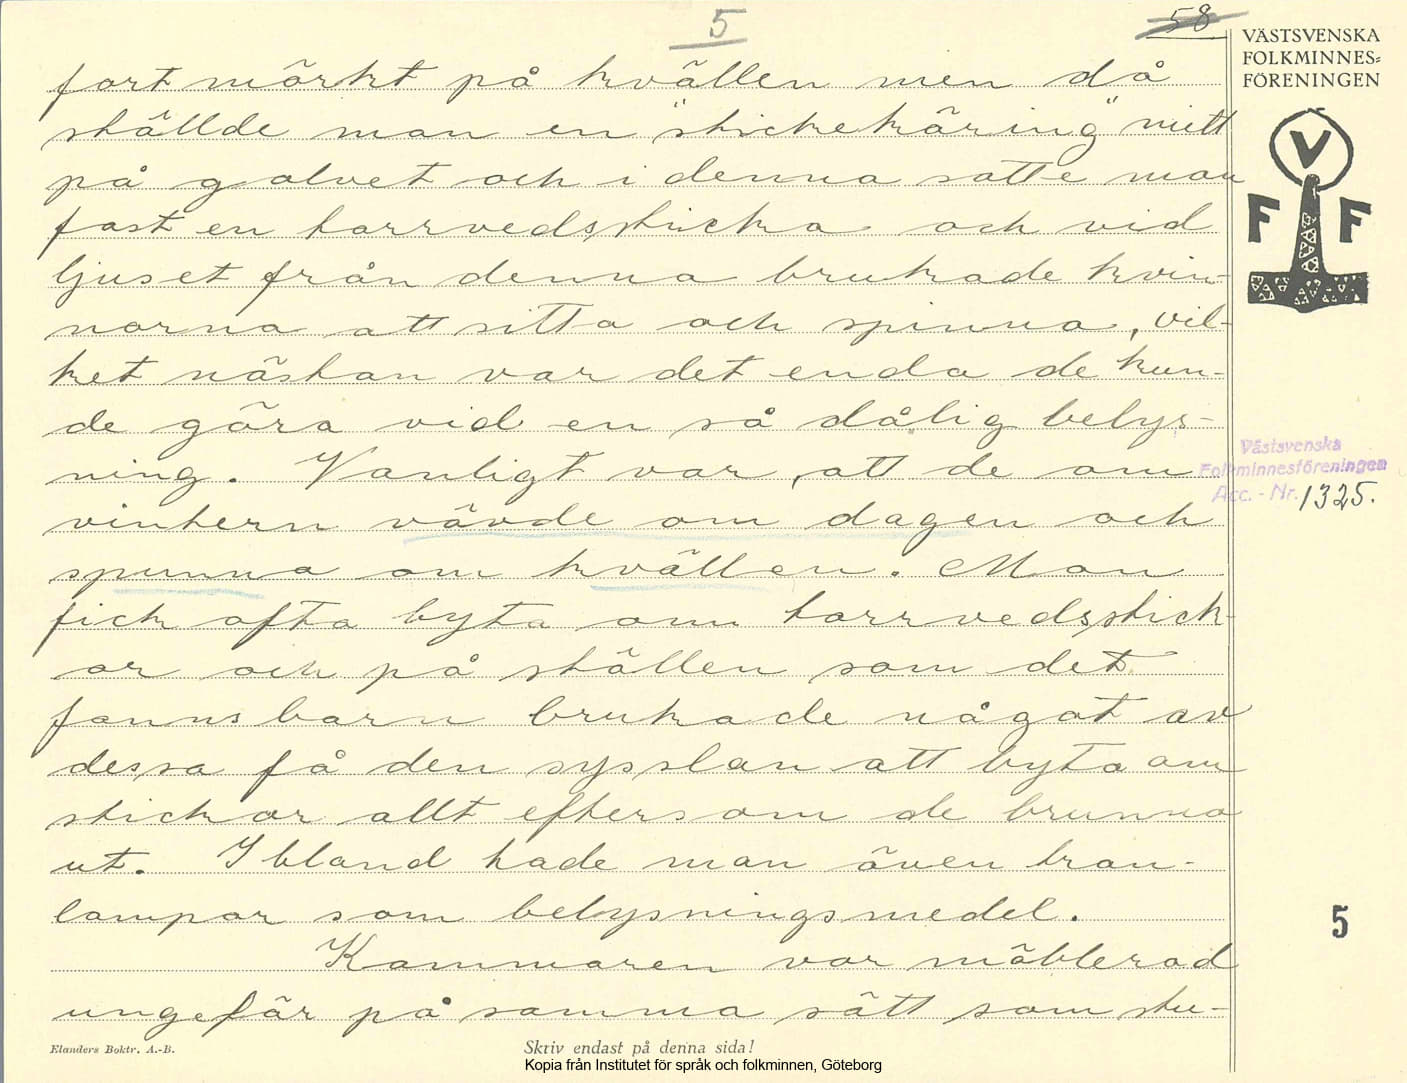 5
58
VÄSTSVENSKA
FOLKMINNES=
FÖRENINGEN
V
F F
fort mörkt på kvällen men då
ställde man en "stickekäring" mitt
på golvet och i denna satte man
fast en torrvedsticka och vid
ljuset från denna brukade kvin-
norna att sitta och spinna, vil-
ket nästan var det enda de kun-
de göra vid en så dålig belys-
ning. Vanligt var, att de om
vintern vävde om dagen och
spunna om kvällen. Man
fick ofta byta om torrvedsstick-
or och på ställen som det
fanns barn brukade något av
dessa få den sysslan att byta om
stickor allt eftersom de brunno
ut. Ibland hade man även tran-
lampor som belysningsmedel.
Kammaren var möblerad
ungefär på samma sätt som stu-
Västsvenska
Folkminnesföreningen
Acc. - Nr. 1325.
5
Elanders Boktr. A.-B.
Skriv endast på denna sida!
Kopia från Institutet för språk och folkminnen, Göteborg